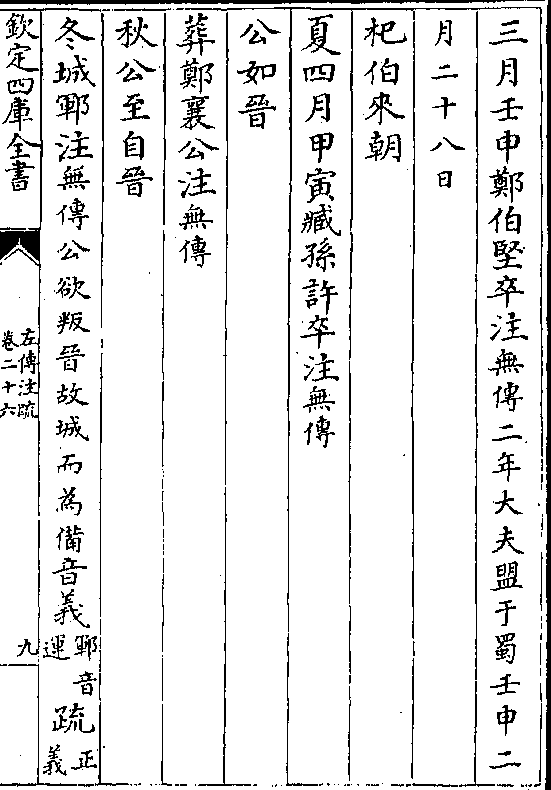 三月壬申鄭伯堅卒注無傳二年大夫盟于蜀壬申二
月二十八日
杞伯來朝
夏四月甲寅臧孫許卒注無傳
公如晉
葬鄭襄公注無傳
秋公至自晉
冬城鄆注無傳公欲叛晉故城而為備音義鄆音運疏正義
欽定四庫全書
左傳注疏
卷二十六
九